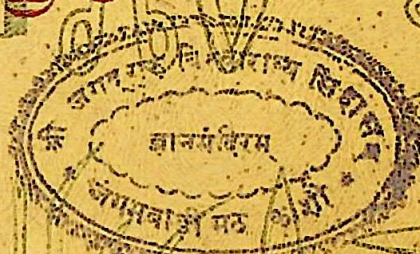 श्री जगद्गुरु विश्वाराध्य सिंहासन
ज्ञानमंदिरम
जंगमवाड़ी मठ काशी